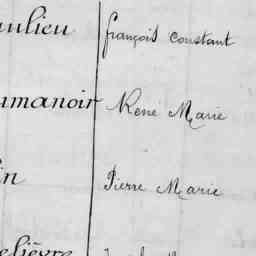 aulieu françois constant
umanoir René Marie
in Pierre Marie
elièvre